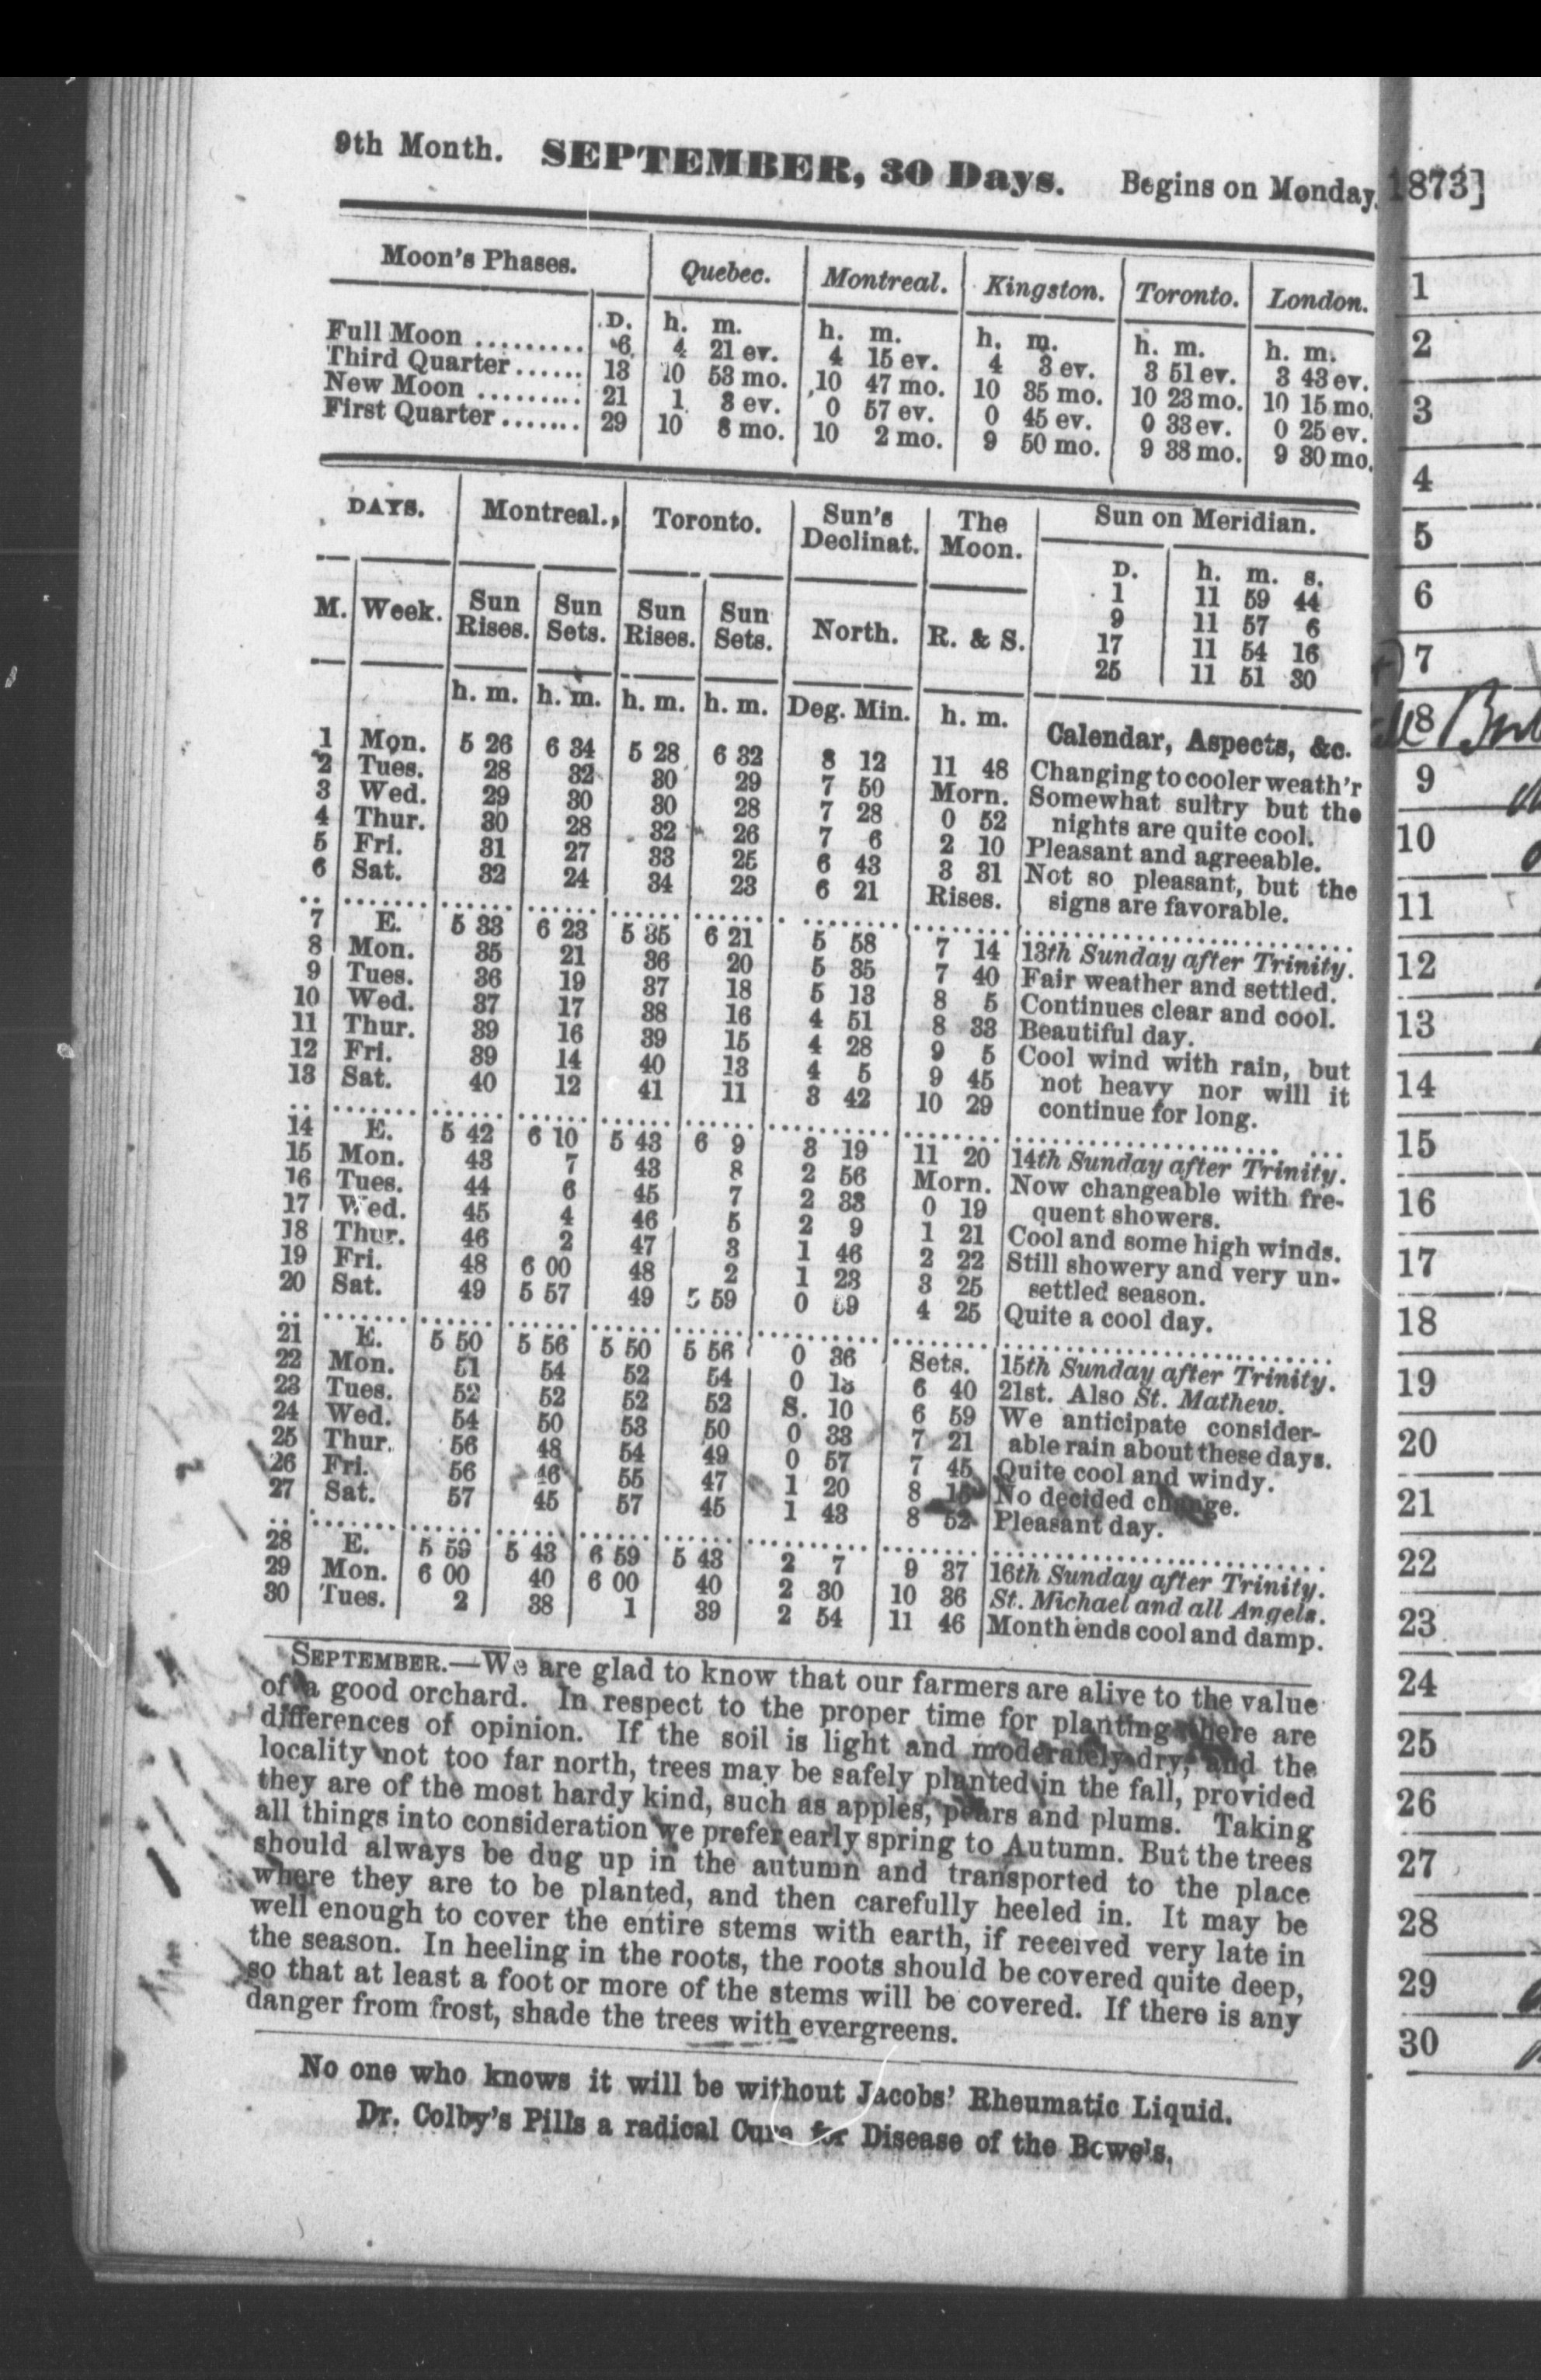 9th Month. SEPTEMBER, 30 Days. Begins on Monday.
Moon's Phases. Quebec. Montreal. Kingston. Toronto. London.
D. h. m. h. m. h. m. h. m. h. m.
Full Moon ......... 6 4 21 ev. 4 15 ev. 4 3 ev. 3 51 ev. 3 43 ev.
Third Quarter ...... 13 10 53 mo. 10 47 mo. 10 35 mo. 10 23 mo. 10 15 mo.
New Moon ......... 21 1 3 ev. 0 57 ev. 0 45 ev. 0 33 ev. 0 25 ev.
First Quarter ....... 29 10 8 mo. 10 2 mo. 9 50 mo. 9 38 mo. 9 30 mo.
DAYS. Montreal. Toronto. Sun's Declinat. The Moon. Sun on Meridian.
M. Week. Sun Rises. Sun Sets. Sun Rises. Sun Sets. North. R. & S.
D. h. m. s.
1 11 59 44
9 11 57 6
17 11 54 16
25 11 51 30
h. m. h. m. h. m. h. m. Deg. Min. h. m. Calendar, Aspects, &c.
1 Mon. 5 26 6 34 5 28 6 32 8 12 11 48 Changing to cooler weath'r
2 Tues. 28 32 30 29 7 50 Morn. Somewhat sultry but the
3 Wed. 29 30 30 28 7 28 0 52 nights are quite cool.
4 Thur. 30 28 32 26 7 6 2 10 Pleasant and agreeable.
5 Fri. 31 27 33 25 6 43 3 31 Not so pleasant, but the
6 Sat. 32 24 34 23 6 21 Rises. signs are favorable.
7 E. 5 33 6 23 5 35 6 21 5 58 7 14 13th Sunday after Trinity.
8 Mon. 35 21 36 20 5 35 7 40 Fair weather and settled.
9 Tues. 36 19 37 18 5 13 8 5 Continues clear and cool.
10 Wed. 37 17 38 16 4 51 8 33 Beautiful day.
11 Thur. 39 16 39 15 4 28 9 5 Cool wind with rain, but
12 Fri. 39 14 40 13 4 5 9 45 not heavy nor will it
13 Sat. 40 12 41 11 3 42 10 29 continue for long.
14 E. 5 42 6 10 5 43 6 9 3 19 11 20 14th Sunday after Trinity.
15 Mon. 43 7 43 8 2 56 Morn. Now changeable with fre-
16 Tues. 44 6 45 7 2 33 0 19 quent showers.
17 Wed. 45 4 46 5 2 9 1 21 Cool and some high winds.
18 Thur. 46 2 47 3 1 46 2 22 Still showery and very un-
19 Fri. 48 6 00 48 2 1 23 3 25 settled season.
20 Sat. 49 5 57 49 5 59 0 59 4 25 Quite a cool day.
21 E. 5 50 5 56 5 50 5 56 0 36 Sets. 15th Sunday after Trinity.
22 Mon. 51 54 52 54 0 13 6 40 21st. Also St. Mathew.
23 Tues. 52 52 52 52 S. 10 6 59 We anticipate consider-
24 Wed. 54 50 53 50 0 33 7 21 able rain about these days.
25 Thur. 56 48 54 49 0 57 7 45 Quite cool and windy.
26 Fri. 56 46 55 47 1 20 8 No decided change.
27 Sat. 57 45 57 45 1 43 8 52 Pleasant day.
28 E. 5 59 5 43 6 59 5 43 2 7 9 37 16th Sunday after Trinity.
29 Mon. 6 00 40 6 00 40 2 30 10 36 St. Michael and all Angels.
30 Tues. 2 38 1 39 2 54 11 46 Month ends cool and damp.
SEPTEMBER.—We are glad to know that our farmers are alive to the value
of a good orchard. In respect to the proper time for planting there are
differences of opinion. If the soil is light and moderately dry, and the
locality not too far north, trees may be safely planted in the fall, provided
they are of the most hardy kind, such as apples, pears and plums. Taking
all things into consideration we prefer early spring to Autumn. But the trees
should always be dug up in the autumn and transported to the place
where they are to be planted, and then carefully heeled in. It may be
well enough to cover the entire stems with earth, if received very late in
the season. In heeling in the roots, the roots should be covered quite deep,
so that at least a foot or more of the stems will be covered. If there is any
danger from frost, shade the trees with evergreens.
No one who knows it will be without Jacobs' Rheumatic Liquid.
Dr. Colby's Pills a radical Cure for Disease of the Bowels.
1873]
1
2
3
4
5
6
7
8
9
10
11
12
13
14
15
16
17
18
19
20
21
22
23
24
25
26
27
28
29
30